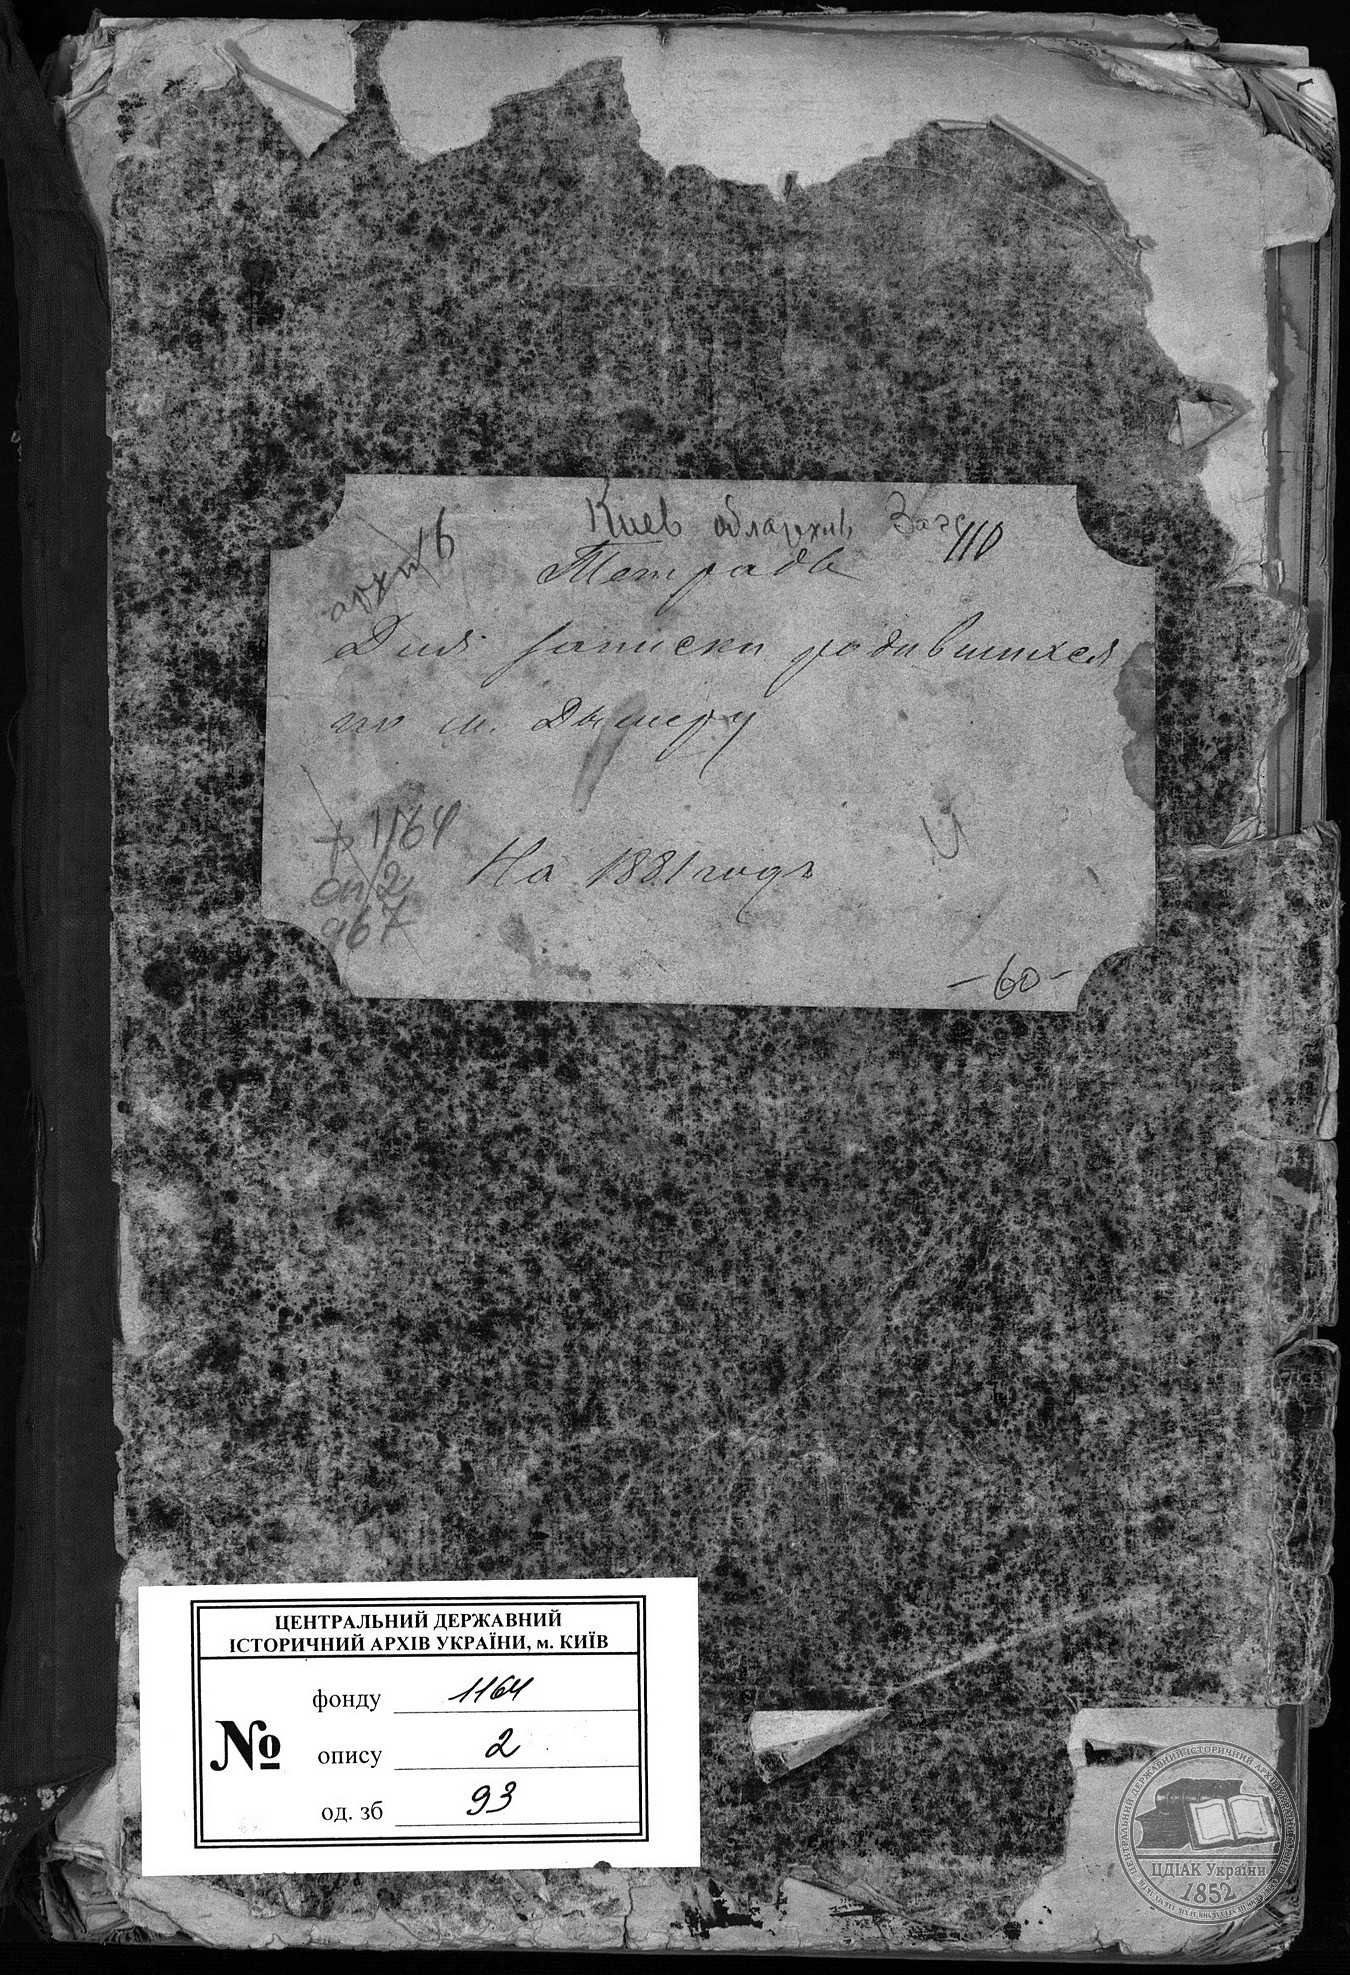 Киев облархив Загс
архив 16
110
Тетрадь
Для записки родившихся
по м. Дымеру
ф 1164
оп 2
д67
На 1881 годъ
-60-
ЦЕНТРАЛЬНИЙ ДЕРЖАВНИЙ
ІСТОРИЧНИЙ АРХІВ УКРАЇНИ, м. КИЇВ
№
фонду 1164
опису 2
од. зб 93
ЦДІАК України
1852